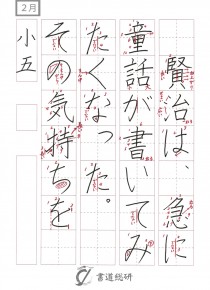 2月
小五
賢治は、急に
童話が書いてみ
たくなった。
その気持ちを
書道総研